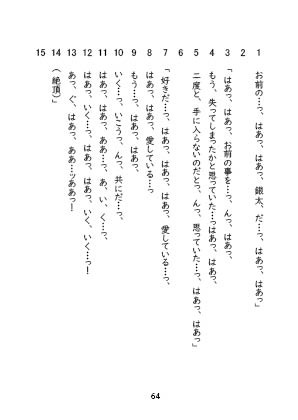 1 お前の…っ、はあっ、はあっ、銀太、だ…っ、はあっ、はあっ」
2
3 「はあっ、はあっ、お前の事を…っ、んっ、はあっ、
4 もう、失ってしまったかと思っていた…っはあっ、はあっ、
5 二度と、手に入らないのだとっ、んっ、思っていた…っ、はあっ、はあっ」
6
7 「好きだ…っ、はあっ、はあっ、はあっ、愛している…っ、
8 はあっ、はあっ、愛している…っ
9 もう…っ、はあっ、はあっ、
10 いく…っ、いこうっ、んっ、共にだ…っ、
11 はあっ、はあっ、ああ…っ、あ、い、く…っ、
12 はあっ、いく…っ、はあっ、はあっ、いく、いく…っ！
13 あっ、ぐ、はあっ、ああ…ッああっ！
14 （絶頂）」
15
64